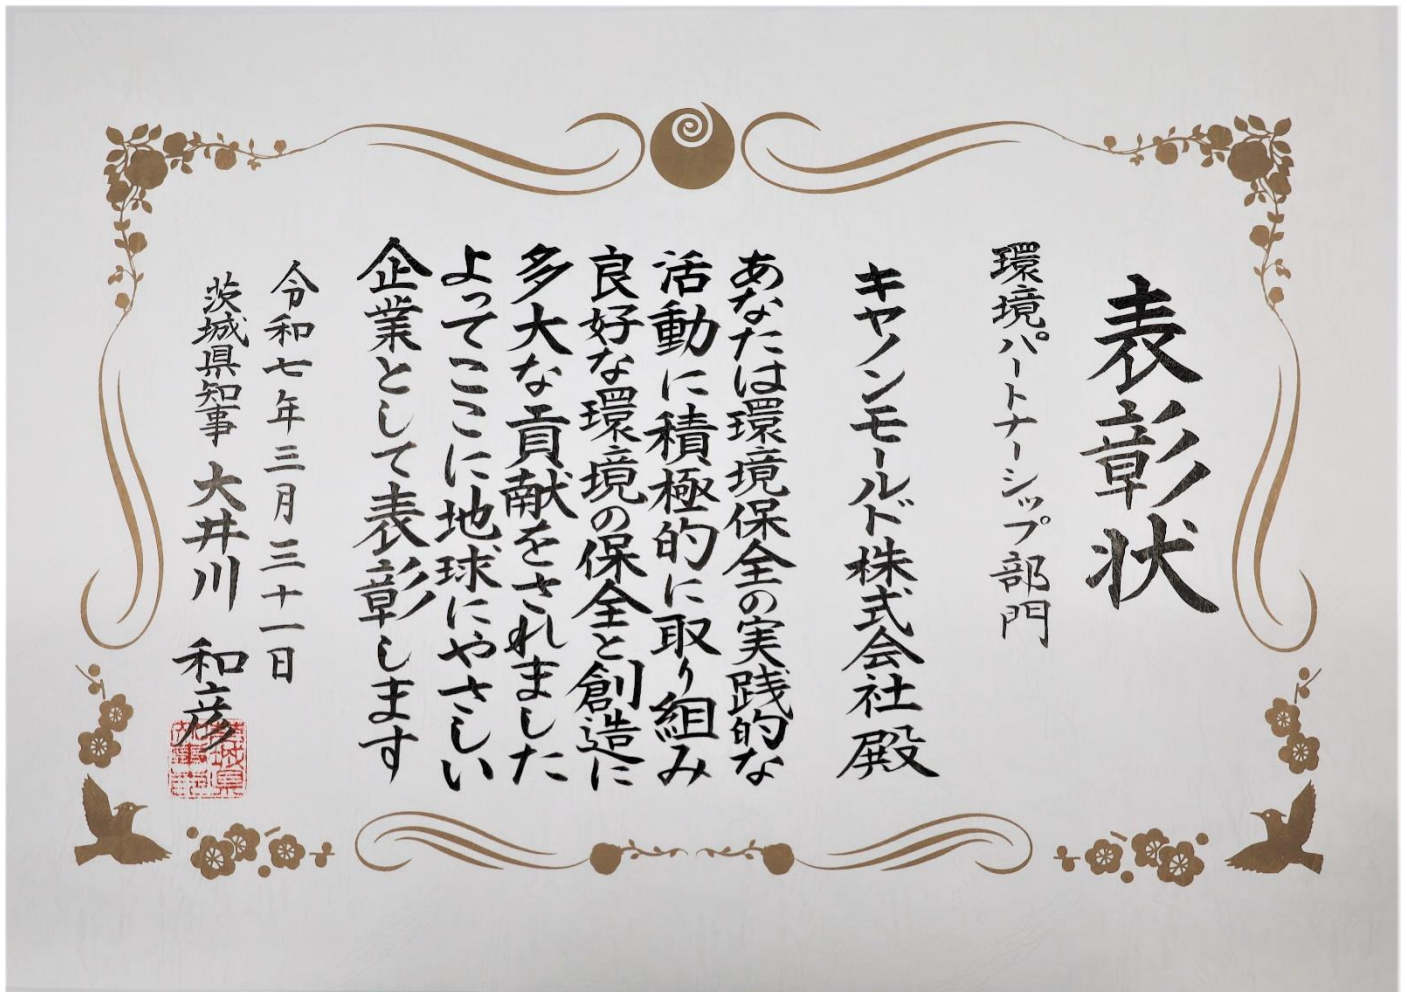 表彰状
環境パートナーシップ部門
キヤノンモールド株式会社殿
あなたは環境保全の実践的な
活動に積極的に取り組み
良好な環境の保全と創造に
多大な貢献をされました
よってここに地球にやさしい
企業として表彰します
令和七年三月三十一日
茨城県知事 大井川 和彦